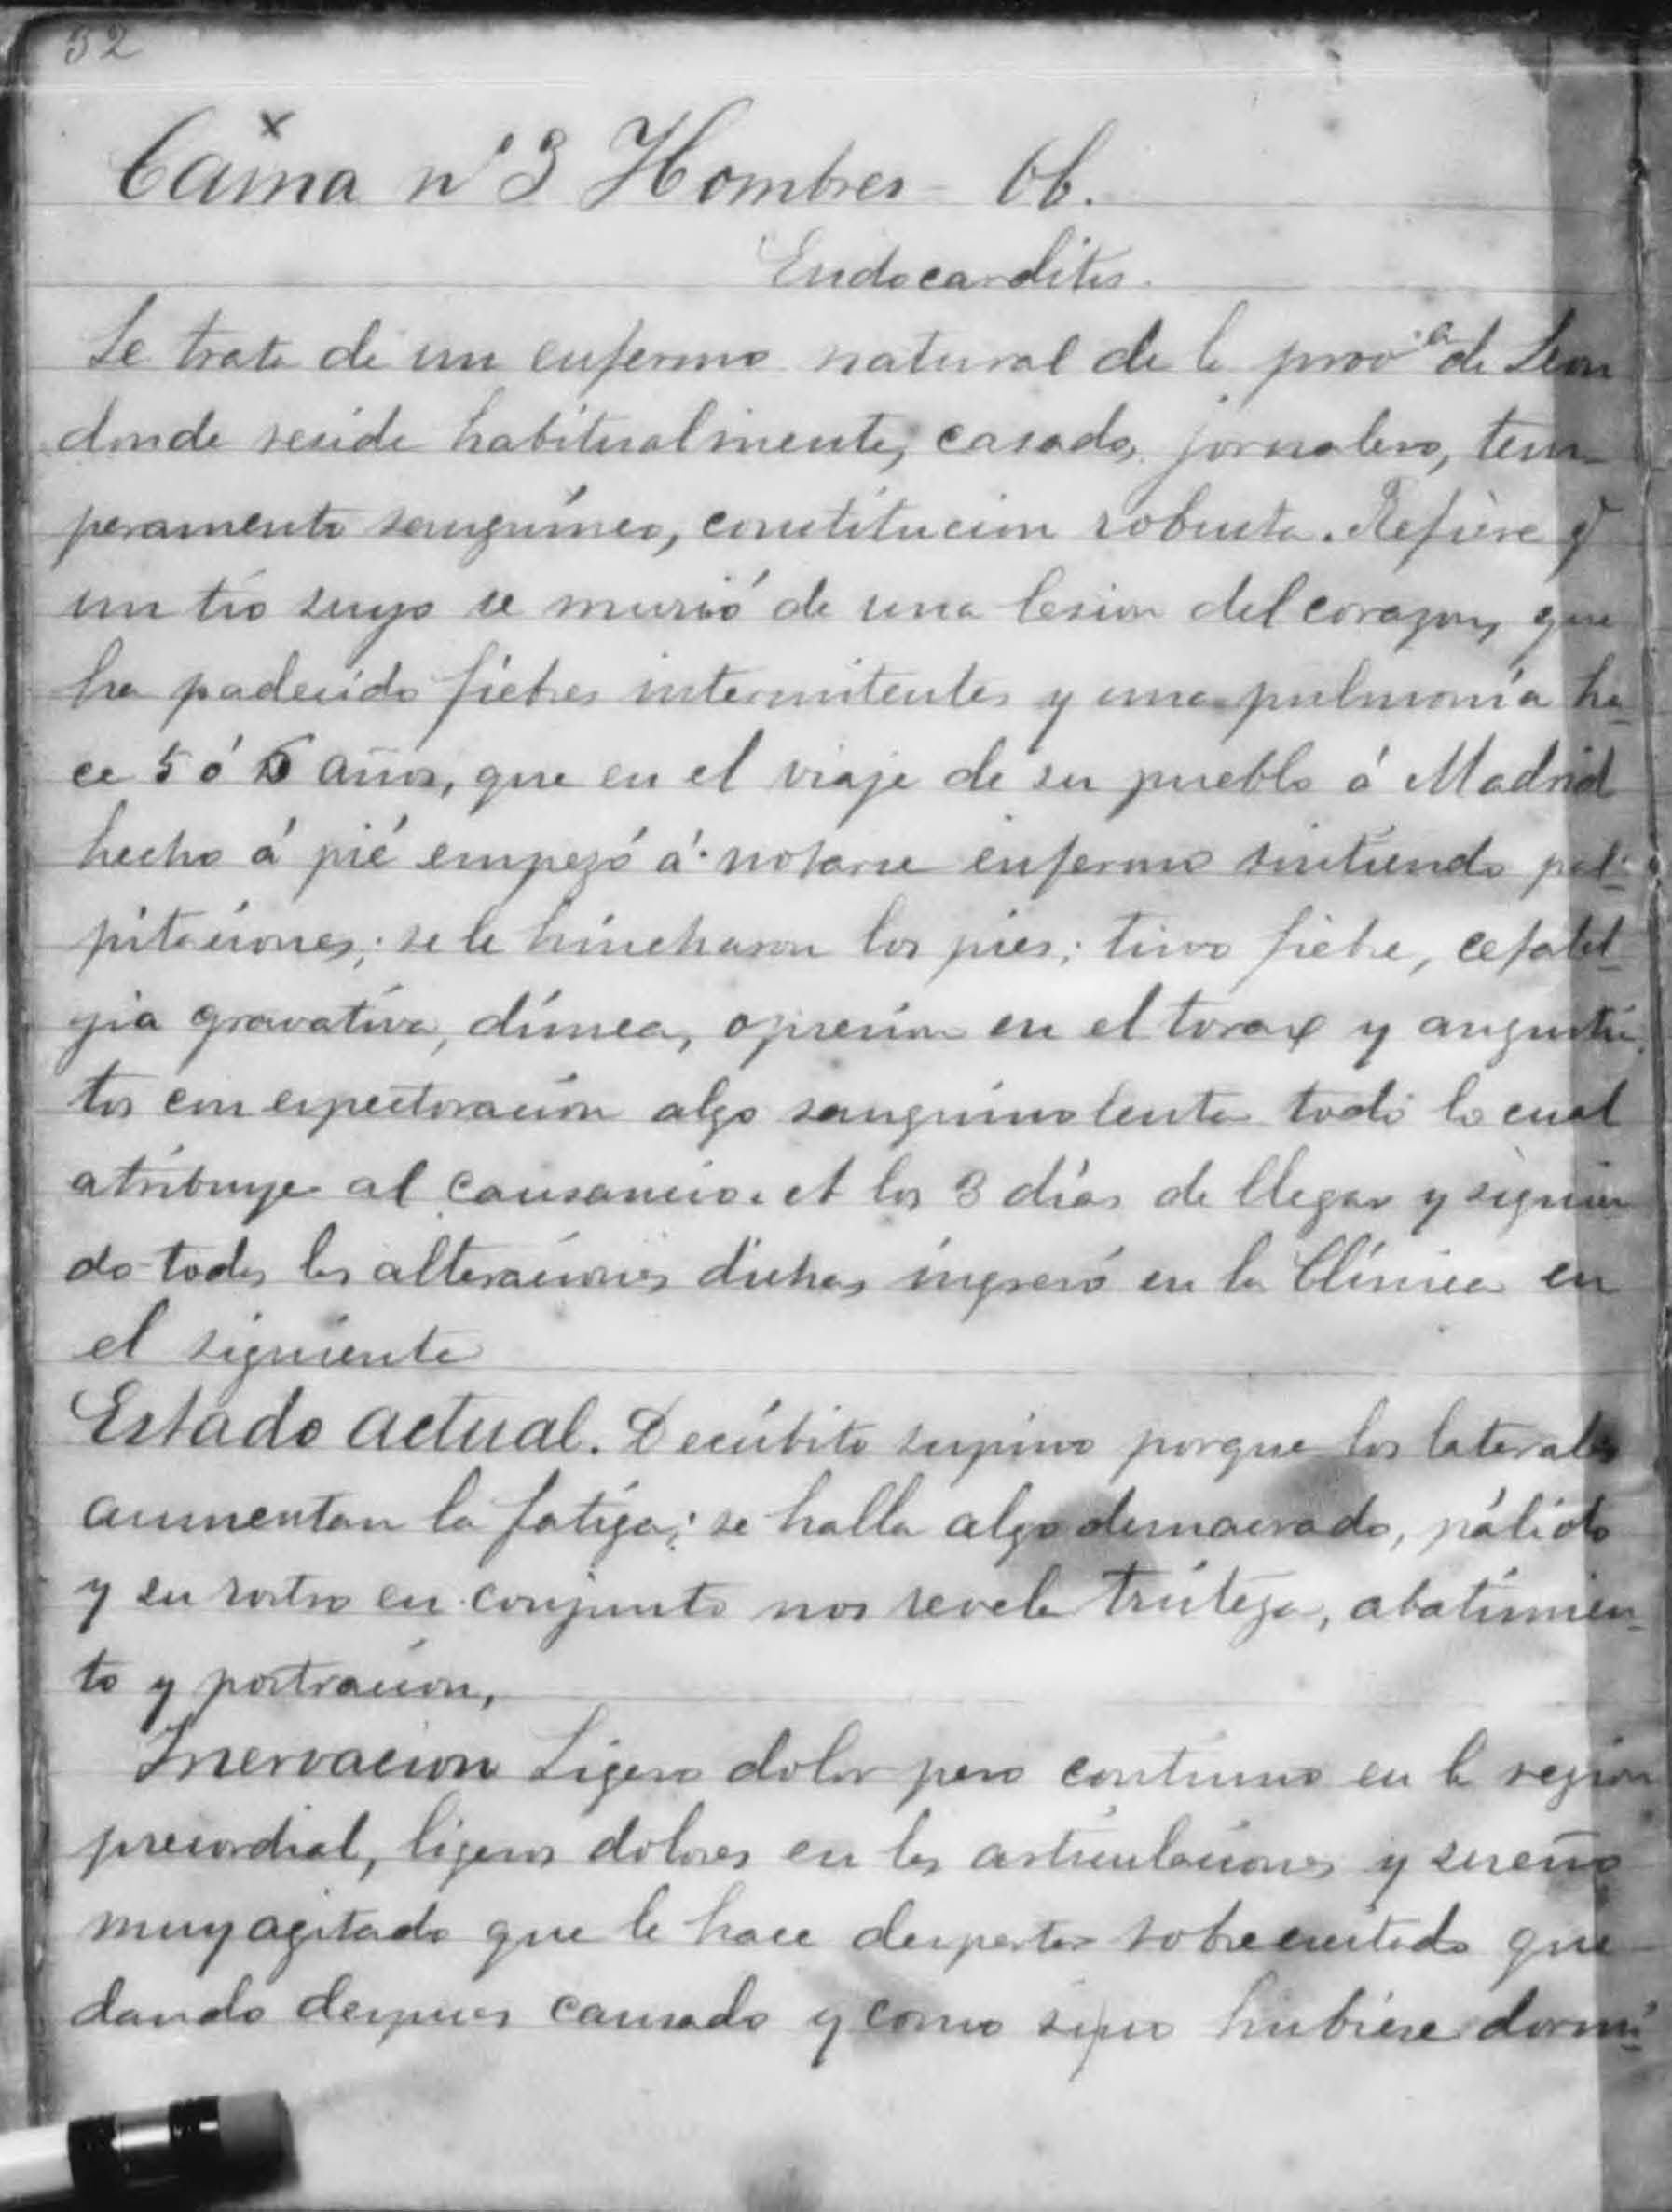 32
Cama nº 3 Hombres - Ob.
Endocarditis.
Se trata de un enfermo natural de la prov.ª de Leon
donde reside habitualmente, casado, jornalero, tem-
peramento sanguíneo, constitucion robusta. Refiere q̃
un tio suyo se murió de una lesion del corazon, que
ha padecido fiebres intermitentes y una pulmonía ha-
ce 5 ó 6 años, que en el viaje de su pueblo á Madrid
hecho á pié empezó á notarse enfermo sintiendo pal-
pitaciones; se le hincharon los pies; tuvo fiebre, cefalal-
gia gravativa, disnea, opresion en el torax y angustia.
tos con expectoración algo sanguinolenta todo lo cual
atribuye al cansancio. A los 3 días de llegar y siguien
do todas las alteraciones dichas ingresó en la Clínica en
el siguiente
Estado actual. Decúbito supino porque los laterales
aumentan la fatiga; se halla algo demacrado, pálido
y su rostro en conjunto nos revela tristeza, abatimien-
to y postracion,
Inervacion Ligero dolor pero continuo en la region
precordial, ligeros dolores en las articulaciones y sueño
muy agitado que le hace despertar sobreexcitado que-
dando despues cansado y como si no hubiese dormi-